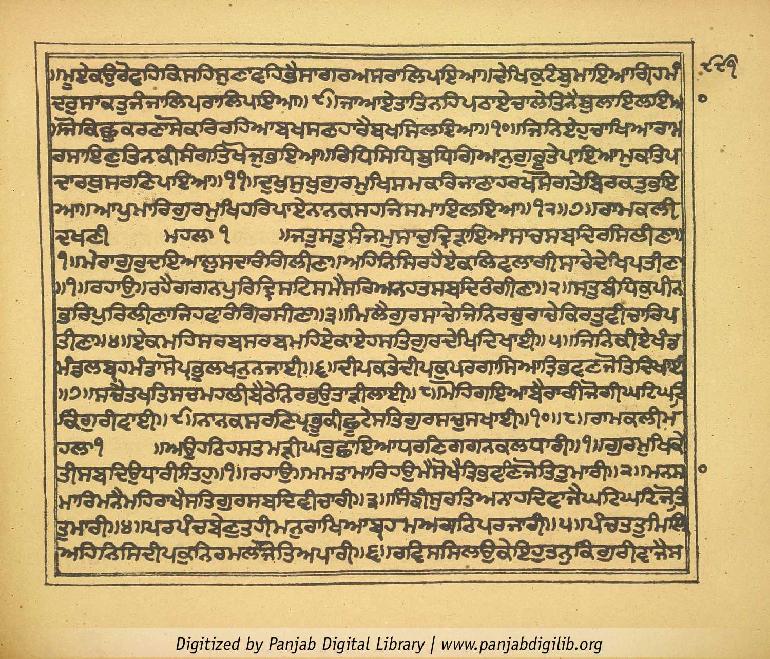 ੮੮੧
॥ਮੂਏਕਉਰੋਵਹਿਕਿਸਹਿਸੁਣਾਵਹਿਭੈਸਾਗਰਅਸਰਾਲਿਪਇਆ॥ਦੇਖਿਕੁਟੰਬੁਮਾਇਆਗ੍ਰਿਹਮੰ
ਦਰੁਸਾਕਤੁਜੰਜਾਲਿਪਰਾਲਿਪਇਆ॥੯॥ਜਾਆਏਤਾਤਿਨਹਿਪਠਾਏਚਾਲੇਤਿਨੈਬੁਲਾਇਲਇਆ
॥ਜੋਕਿਛੁਕਰਣਾਸੋਕਰਿਰਹਿਆਬਖਸਣਹਾਰੈਬਖਸਿਲਇਆ॥੧੦॥ਜਿਨਿਏਹੁਚਾਖਿਆਰਾਮ
ਰਸਾਇਣੁਤਿਨਕੀਸੰਗਤਿਖੋਜੁਭਇਆ॥ਰਿਧਿਸਿਧਿਬੁਧਿਗਿਆਨੁਗੁਰੂਤੇਪਾਇਆਮੁਕਤਿਪ
ਦਾਰਥੁਸਰਣਿਪਇਆ॥੧੧॥ਦੁਖੁਸੁਖੁਗੁਰਮੁਖਿਸਮਕਰਿਜਾਣਾਹਰਖਸੋਗਤੇਬਿਰਕਤੁਭਇ
ਆ॥ਆਪੁਮਾਰਿਗੁਰਮੁਖਿਹਰਿਪਾਏਨਾਨਕਸਹਜਿਸਮਾਇਲਇਆ॥੧੨॥੭॥ਰਾਮਕਲੀ
ਦਖਣੀ ਮਹਲਾ ੧ ॥ਜਤੁਸਤੁਸੰਜਮੁਸਾਚੁਦ੍ਰਿੜਾਇਆਸਾਚਸਬਦਿਰਸਿਲੀਣਾ॥
੧॥ਮੇਰਾਗੁਰੁਦਇਆਲੁਸਦਾਰੰਗਿਲੀਣਾ॥ਅਹਿਨਿਸਿਰਹੈਏਕਲਿਵਲਾਗੀਸਾਚੇਦੇਖਿਪਤੀਣਾ
॥੧॥ਰਹਾਉ॥ਰਹੈਗਗਨਪੁਰਿਦ੍ਰਿਸਟਿਸਮੈਸਰਿਅਨਹਤਸਬਦਿਰੰਗੀਣਾ॥੨॥ਸਤੁਬੰਧਿਕੁਪੀਨ
ਭਰਿਪੁਰਿਲੀਣਾਜਿਹਵਾਰੰਗਿਰਸੀਣਾ॥੩॥ਮਿਲੈਗੁਰਸਾਚੇਜਿਨਿਰਚੁਰਾਚੇਕਿਰਤੁਵੀਚਾਰਿਪ
ਤੀਣਾ॥੪॥ਏਕਮਹਿਸਰਬਸਰਬਮਹਿਏਕਾਏਹਸਤਿਗੁਰਦੇਖਿਦਿਖਾਈ॥੫॥ਜਿਨਿਕੀਏਖੰਡ
ਮੰਡਲਬ੍ਰਹਮੰਡਾਸੋਪ੍ਰਭੁਲਖਨੁਨਜਾਈ॥੬॥ਦੀਪਕਤੇਦੀਪਕੁਪਰਗਾਸਿਆਤ੍ਰਿਭਵਣਜੋਤਿਦਿਖਾਈ
॥੭॥ਸਚੈਤਖਤਿਸਚਮਹਲੀਬੈਠੇਨਿਰਭਉਤਾੜੀਲਾਈ॥੮॥ਮੋਹਿਗਇਆਬੈਰਾਗੀਜੋਗੀਘਟਿਘਟਿ
ਕਿੰਗੁਰੀਵਾਈ॥੯॥ਨਾਨਕਸਰਣਿਪ੍ਰਭੂਕੀਛੂਟੇਸਤਿਗੁਰਸਚੁਸਖਾਈ॥੧੦॥੮॥ਰਾਮਕਲੀਮ
ਹਲਾ੧ ॥ਅਉਹਠਿਹਸਤਮੜੀਘਰੁਛਾਇਆਧਰਣਿਗਗਨਕਲਧਾਰੀ॥੧॥ਗੁਰਮੁਖਿਕੇ
ਤੀਸਬਦਿਉਧਾਰੀਸੰਤਹੁ॥੧॥ਰਹਾਉ॥ਮਮਤਾਮਾਰਿਹਉਮੈਸੋਖੈਤ੍ਰਿਭਵਣਿਜੋਤਿਤੁਮਾਰੀ॥੨॥ਮਨਸਾ
ਮਾਰਿਮਨੈਮਹਿਰਾਖੈਸਤਿਗੁਰਸਬਦਿਵੀਚਾਰੀ॥੩॥ਸਿੰਙੀਸੁਰਤਿਅਨਾਹਦਿਵਾਜੈਘਟਿਘਟਿਜੋਤਿ
ਤੁਮਾਰੀ॥੪॥ਪਰਪੰਚਬੇਣੁਤਹੀਮਨੁਰਾਖਿਆਬ੍ਰਹਮਅਗਨਿਪਰਜਾਰੀ॥੫॥ਪੰਚਤਤੁਮਿਲਿ
ਅਹਿਨਿਸਿਦੀਪਕੁਨਿਰਮਲਜੋਤਿਅਪਾਰੀ॥੬॥ਰਵਿਸਸਿਲਉਕੇਇਹੁਤਨੁਕਿੰਗੁਰੀਵਾਜੈਸ
Digitized by Panjab Digital Library | www.panjabdigilib.org